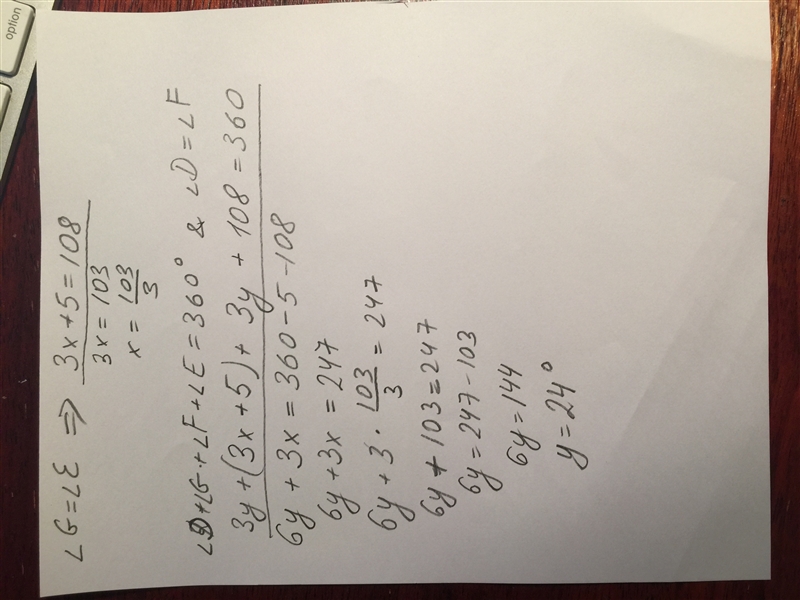 option
∠G=∠E ⇒ 3x+5=108
3x=103
x=103/3
∠D+∠G+∠F+∠E=360° & ∠D=∠F
3y+(3x+5)+3y+108=360
6y+3x=360-5-108
6y+3x=247
6y+3·103/3=247
6y+103=247
6y=247-103
6y=144
y=24°